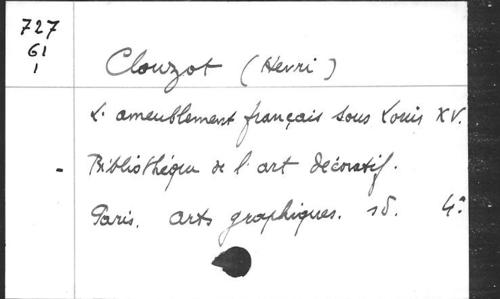 727
61
1
Clouzot (Henri)
L'ameublement français sous Louis XV.
Bibliothéque de l'art décoratif.
Paris. arts graphiques. sd. 4°